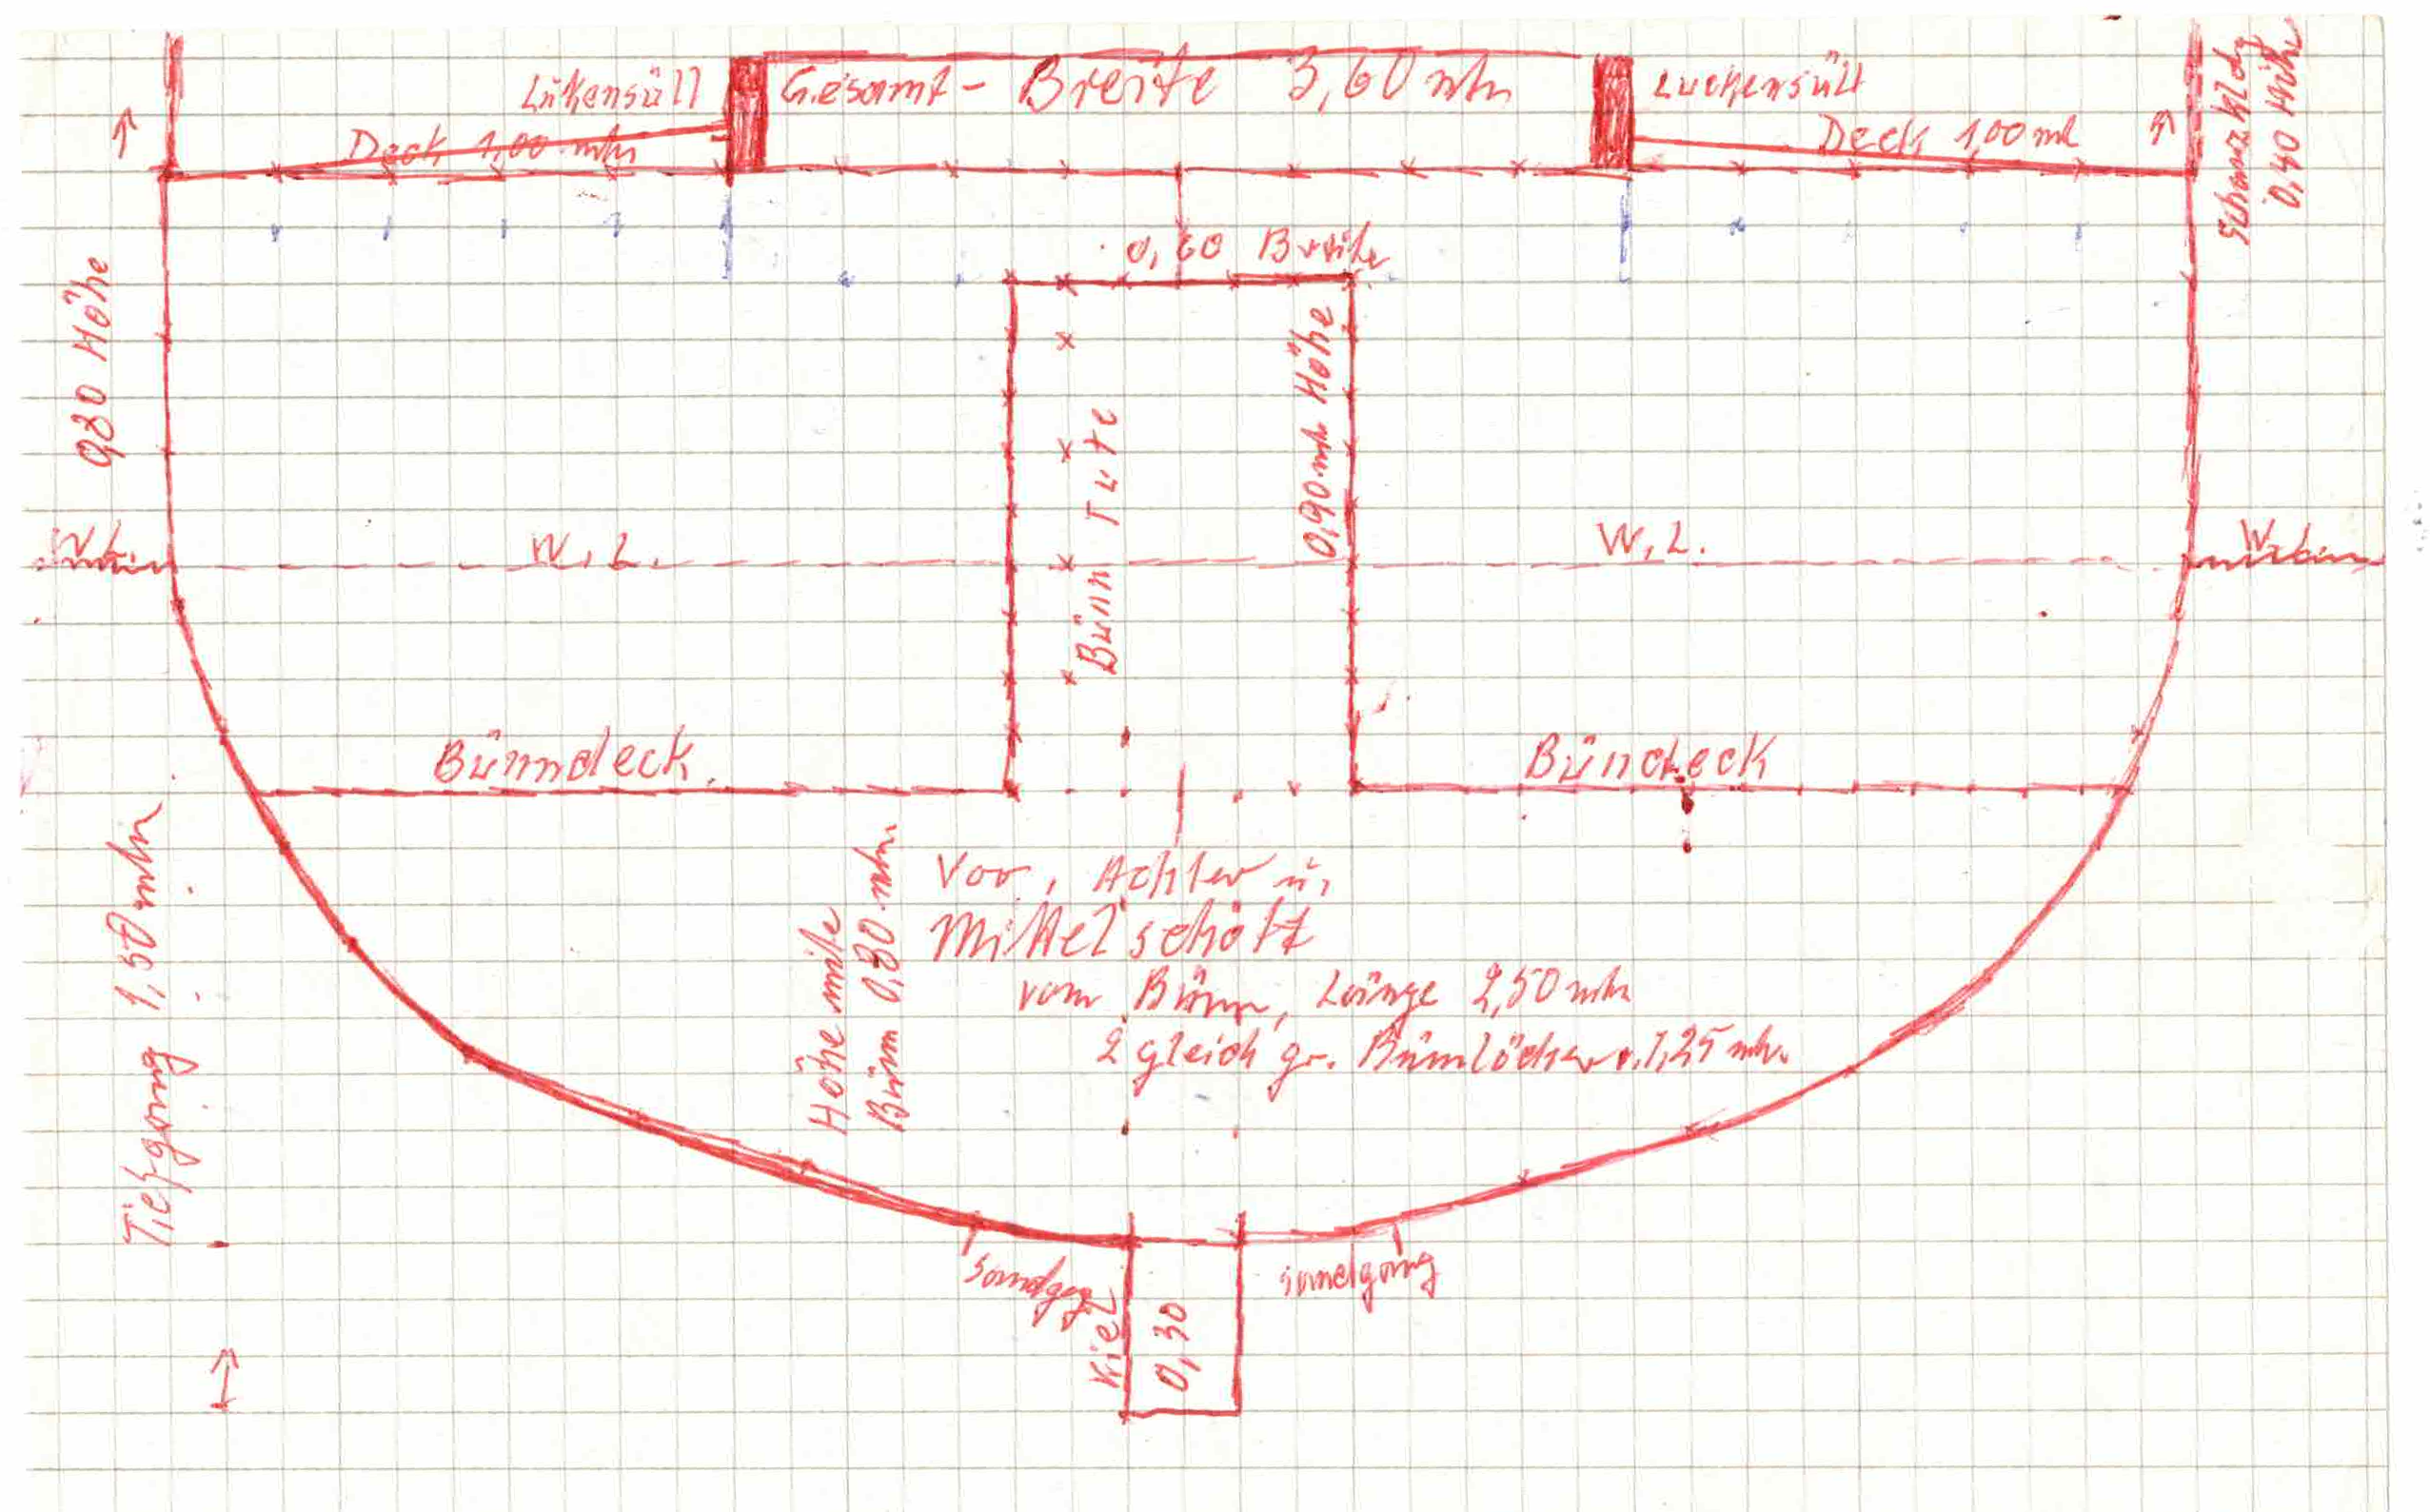 Lükensüll
Gesamt - Breite 3,60 mtr
Luckensüll
Deck 1,00 mtr
Deck 1,00 mt
0,40 Höhe
0,60 Breite
0,80 Höhe
0,90 mtr Höhe
Bünn Tute
W.L.
W.L.
Bünndeck.
Bündeck
Tiefgang 1,50 mtr
Höhe mitte
Bünn 0,80 mtr
Vor, Achter u,
Mittelschott
vom Bünn, Länge 2,50 mtr
2 gleich gr. Bünnlöcher v. 1,25 mtr.
sandgang
Kiel
0,30